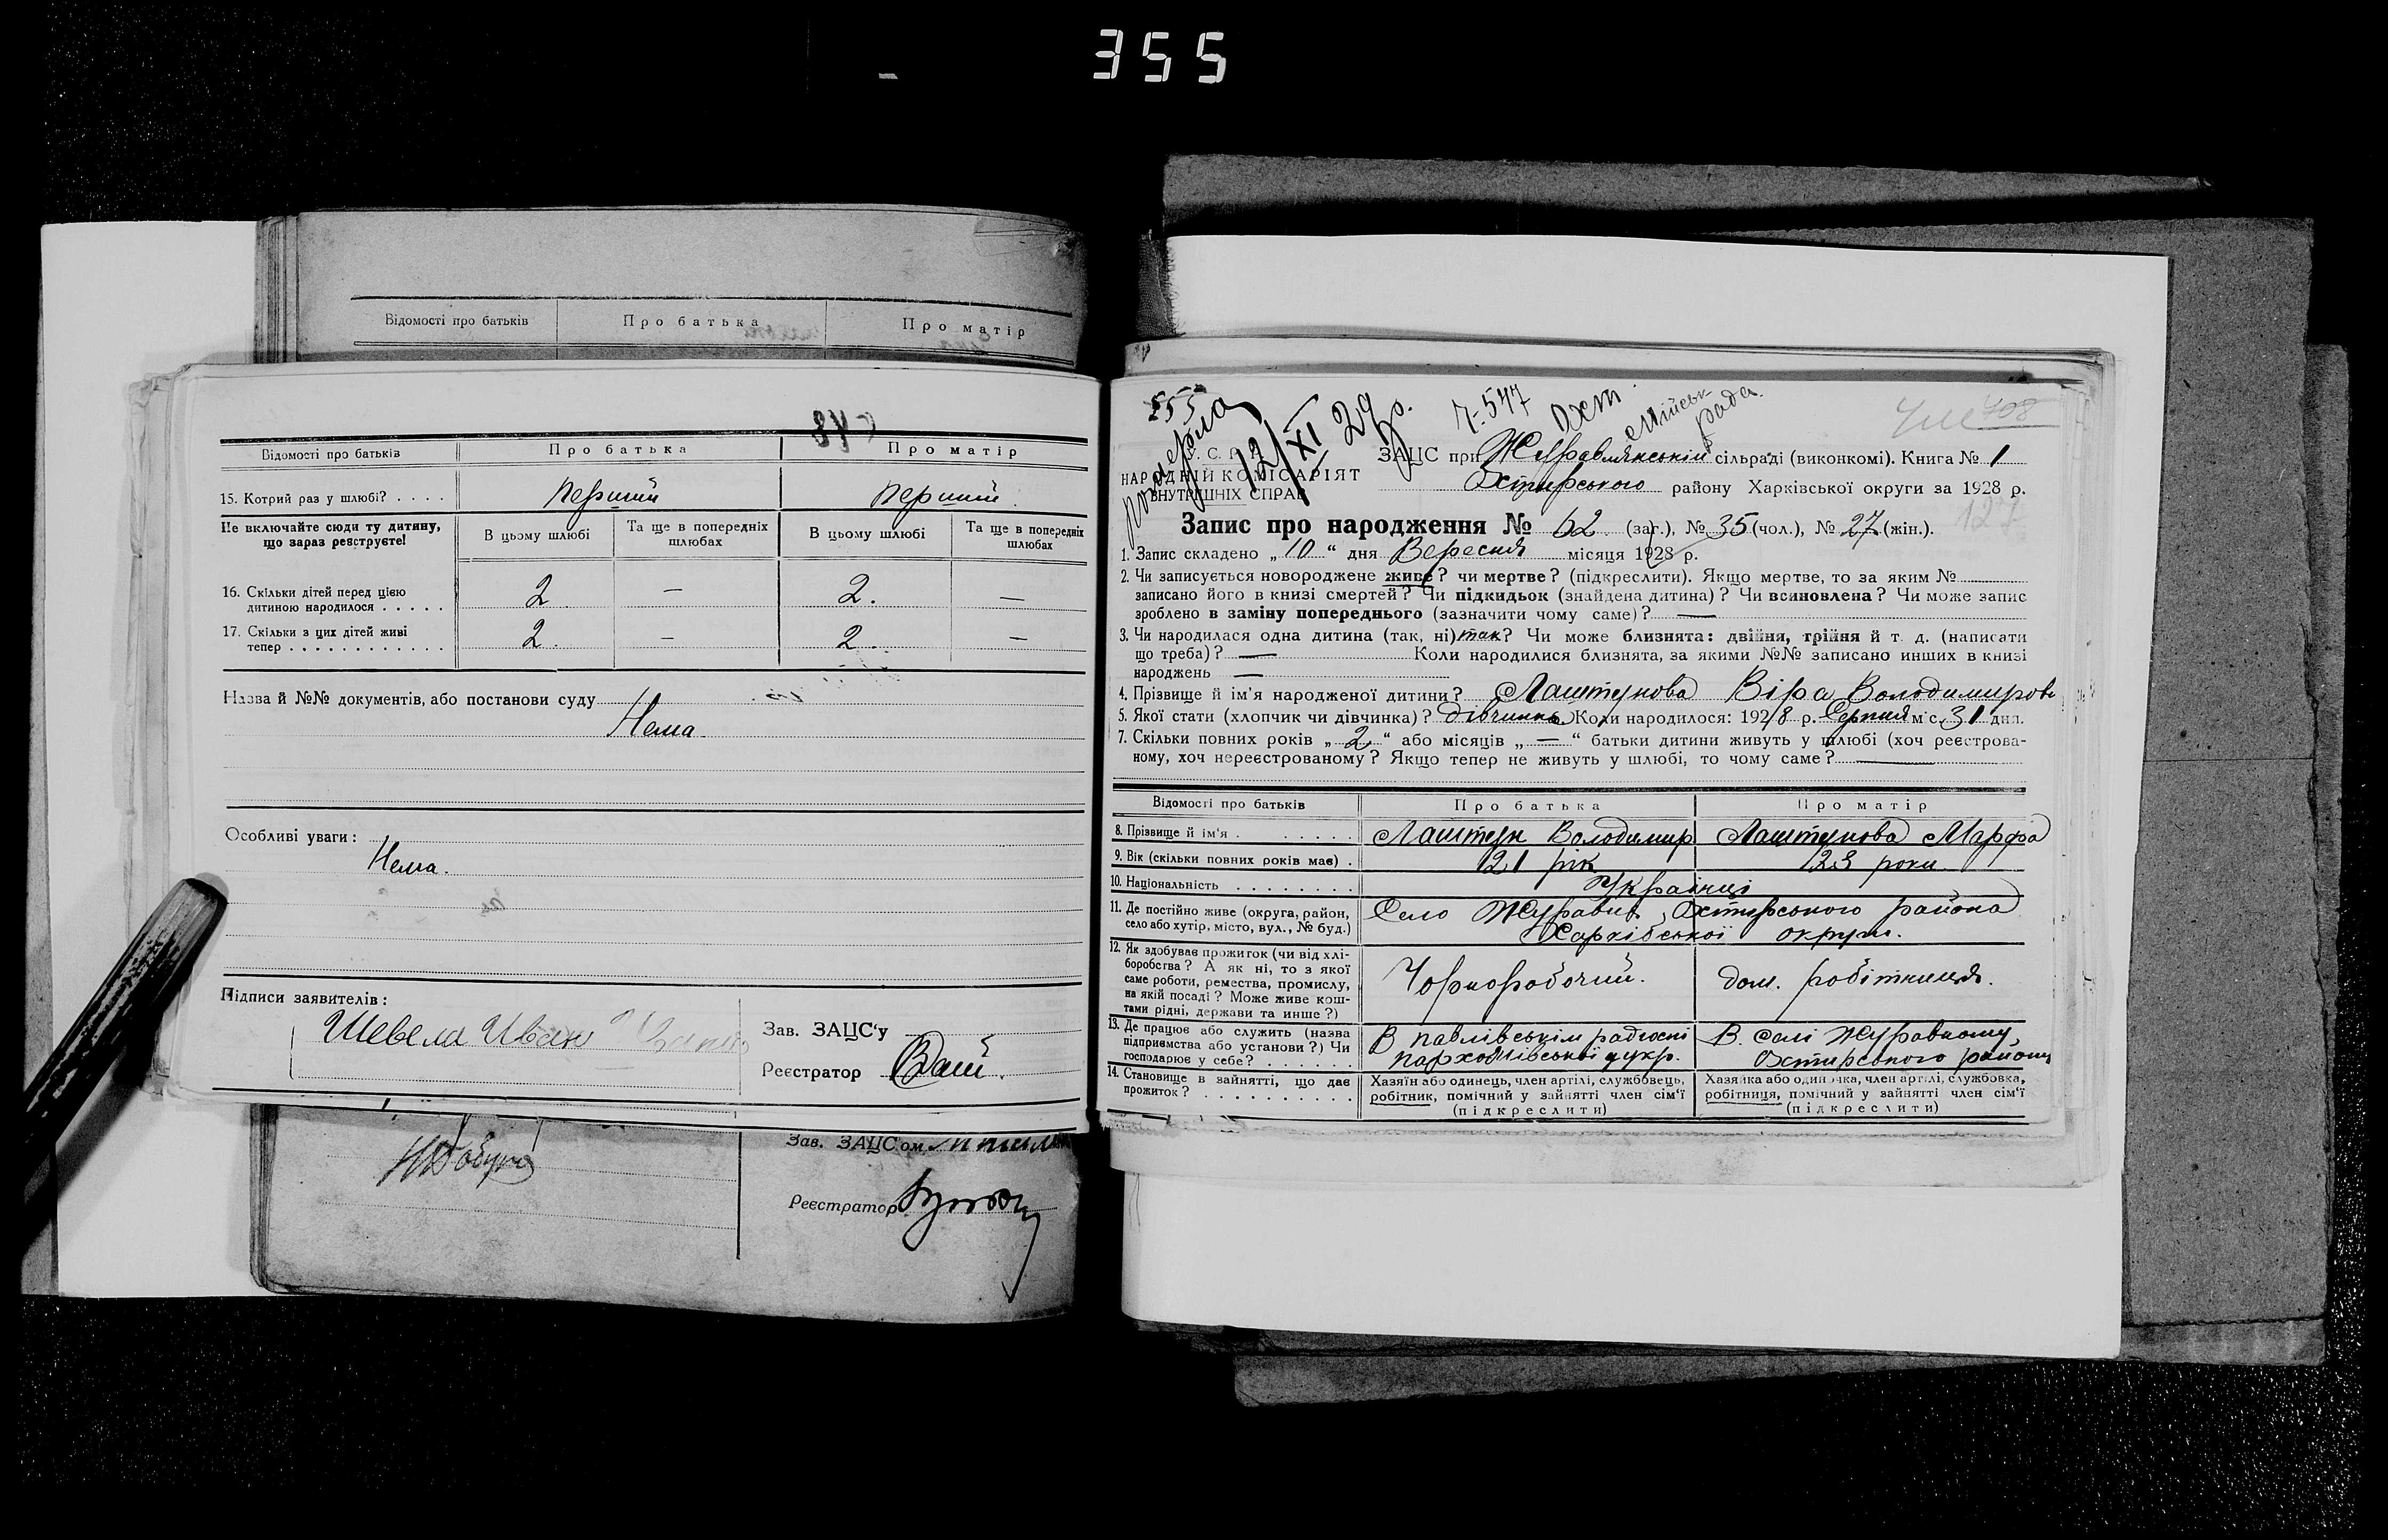 355
Відомості про батьків Про батька Про матір
Відомості про батьків Про батька Про матір
15. Котрий раз у шлюбі? . . . . Перший Перший
Не включайте сюди ту дитину, що зараз реєструєте!
В цьому шлюбі Та ще в попередніх шлюбах В цьому шлюбі Та ще в попередніх шлюбах
16. Скільки дітей перед цією
дитиною народилося . . . . . 2. — 2. —
17. Скільки з цих дітей живі
тепер . . . . . . . . . . . . 2. — 2. —
Назва й №№ документів, або постанови суду
Нема.
Особливі уваги:
Нема.
Підписи заявителів:
Шевела Иван
Зав. ЗАЦС'у
Реєстратор
Зав. ЗАЦСом
Реєстратор
555
померла
12/XI 29 р.
7-547
Охт.
міськ
рада.
708
У. С. Р. Р.
НАРОДНІЙ КОМІСАРІЯТ
ВНУТРІШНІХ СПРАВ
ЗАЦС при Журавлянській сільраді (виконкомі). Книга № 1
Охтирського району Харківської округи за 1928 р.
127
Запис про народження № 62 (заг.), № 35 (чол.), № 27 (жін.).
1. Запис складено „ 10 “ дня Вересня місяця 1928 р.
2. Чи записується новороджене живе? чи мертве? (підкреслити). Якщо мертве, то за яким №
записано його в книзі смертей? Чи підкидьок (знайдена дитина)? Чи всиновлена? Чи може запис
зроблено в заміну попереднього (зазначити чому саме)? —
3. Чи народилася одна дитина (так, ні) так? Чи може близнята: двійня, трійня й т. д. (написати
що треба)? — Коли народилися близнята, за якими №№ записано инших в книзі
народжень —
4. Прізвище й ім'я народженої дитини? Лаштунова Віра Володимирова
5. Якої статі (хлопчик чи дівчинка)? дівчинка Коли народилося: 1928 р. Серпня міс. 31 дня.
7. Скільки повних років „ 2 “ або місяців „ — “ батьки дитини живуть у шлюбі (хоч реєстрова-
ному, хоч нереєстрованому? Якщо тепер не живуть у шлюбі, то чому саме? —
Відомості про батьків Про батька Про матір
8. Прізвище й ім'я . . . . . . Лаштун Володимир Лаштунова Марфа
9. Вік (скільки повних років має) . 21 рік 23 роки
10. Національність . . . . . . . . Українці
11. Де постійно живе (округа, район,
село або хутір, місто, вул., № буд.)
Село Журавне, Охтирського района
Харківської округи.
12. Як здобуває прожиток (чи від хлі-
боробства? А як ні, то з якої
саме роботи, ремества, промислу,
на якій посаді? Може живе кош-
тами рідні, держави та инше?)
Чорноробочий. дом. робітниця.
13. Де працює або служить (назва
підприємства або установи?) Чи
господарює у себе? . . . . . .
В Павлівськім радгоспі
Пархомівської цукр.
В. селі Журавному,
Охтирського району
14. Становище в зайнятті, що дає
прожиток? . . . . . . . . . .
Хазяїн або одинець, член артілі, службовець,
робітник, помічний у зайнятті член сім'ї
(підкреслити)
Хазяйка або одиначка, член артілі, службовка,
робітниця, помічний у зайнятті член сім'ї
(підкреслити)